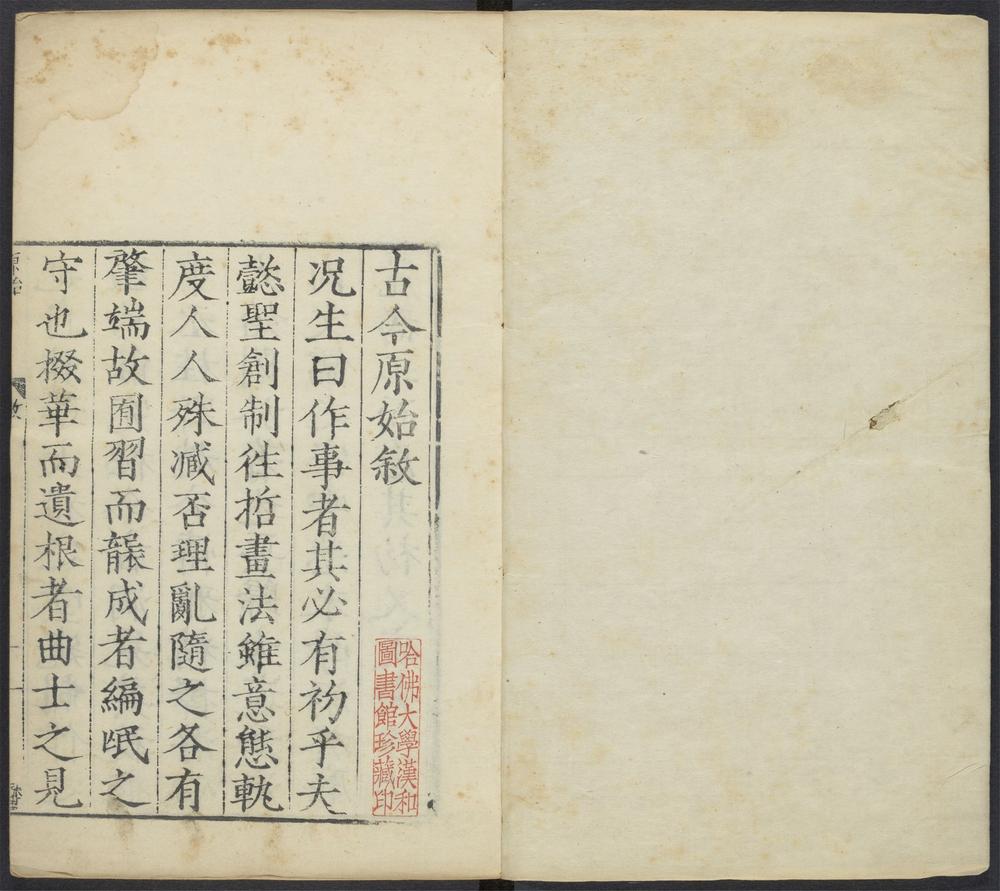 古今原始敘
况生曰作事者其必有初乎夫
懿聖創制徃哲畫法雖意態軌
度人人殊减否理亂隨之各有
肇端故囿習而襲成者編氓之
守也掇華而遺根者曲士之見
哈佛大學漢和
圖書館珍藏印
原始